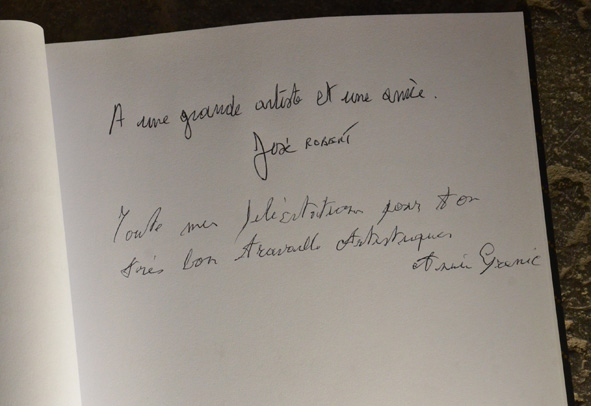 A une grande artiste et une amie.
José ROBERT
Toute mes félicitations pour ton
très bon travaille Artistiques
Granic